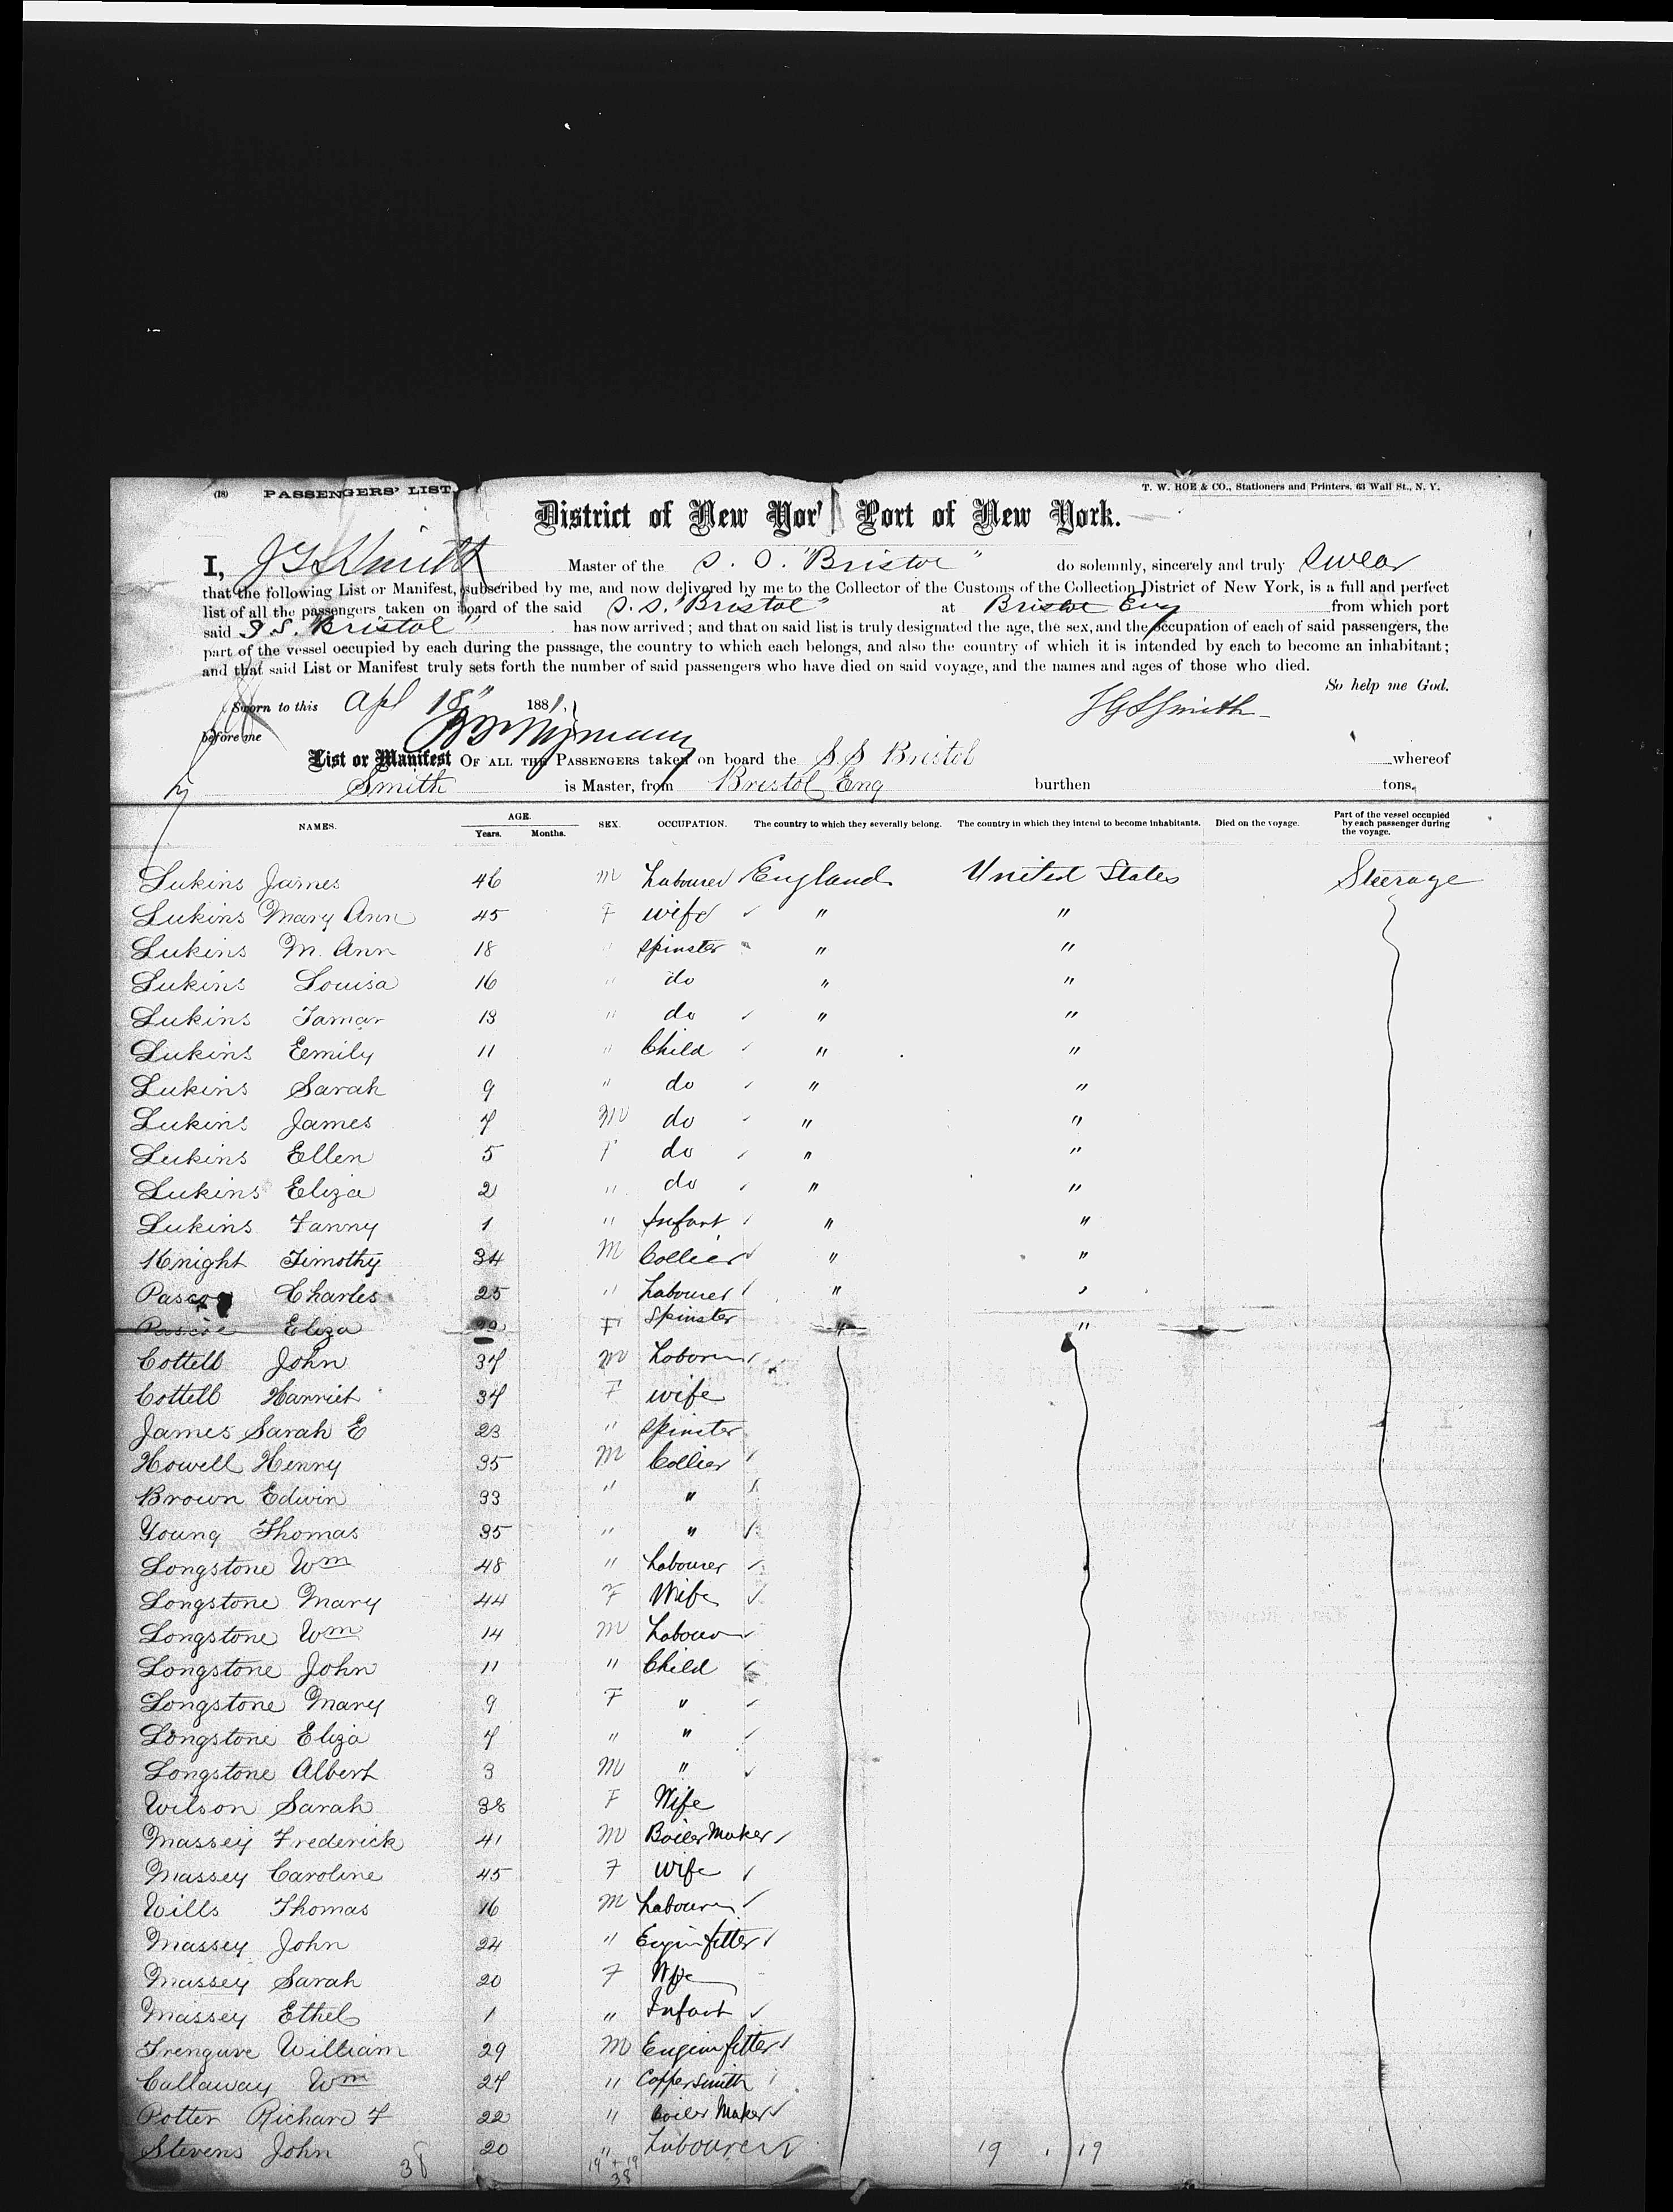 (18) PASSENGERS' LIST. T. W. ROE & CO., Stationers and Printers, 63 Wall St., N. Y.
District of New Yor Port of New York.
I, J G S Smith Master of the S. S. "Bristol" do solemnly, sincerely and truly swear
that the following List or Manifest, subscribed by me, and now delivered by me to the Collector of the Customs of the Collection District of New York, is a full and perfect
list of all the passengers taken on board of the said S. S. "Bristol" at Bristol Eng from which port
said S. S. Bristol" has now arrived; and that on said list is truly designated the age, the sex, and the occupation of each of said passengers, the
part of the vessel occupied by each during the passage, the country to which each belongs, and also the country of which it is intended by each to become an inhabitant;
and that said List or Manifest truly sets forth the number of said passengers who have died on said voyage, and the names and ages of those who died.
So help me God.
Sworn to this Apl 18" 1881. J G S Smith
before me
List or Manifest OF ALL THE PASSENGERS taken on board the S. S Bristol whereof
Smith is Master, from Bristol Eng burthen tons.
NAMES. AGE. Years. Months. SEX. OCCUPATION. The country to which they severally belong. The country in which they intend to become inhabitants. Died on the voyage. Part of the vessel occupied by each passenger during the voyage.
Lukins James 46 M Labourer England United States Steerage
Lukins Mary Ann 45 F wife " "
Lukins M. Ann 18 " spinster " "
Lukins Louisa 16 " do " "
Lukins Tamar 13 " do " "
Lukins Eemily 11 " Child " "
Lukins Sarah 9 " do " "
Lukins James 7 M do " "
Lukins Ellen 5 F do " "
Lukins Eliza 2 " do " "
Lukins Fanny 1 " Infant " "
Knight Timothy 34 M Collier " "
Pascoe Charles 25 " Labourer " "
Pascoe Eliza F Spinster " "
Cottell John 37 M Laborer
Cottell Harriet 37 F wife
James Sarah E 23 " spinster
Howell Henry 35 M Collier
Brown Edwin 33 " "
Young Thomas 35 " "
Longstone Wm 48 " Labourer
Longstone Mary 44 F Wife
Longstone Wm 14 M Labourer
Longstone John 11 " Child
Longstone Mary 9 F "
Longstone Eliza 7 " "
Longstone Albert 3 M "
Wilson Sarah 38 F Wife
Massey Frederick 41 M Boiler Maker
Massey Caroline 45 F Wife
Wills Thomas 16 M Labourer
Massey John 24 " Enginfitter
Massey Sarah 20 F Wife
Massey Ethel 1 " Infant
Trenguve William 29 M Engin fitter
Callaway Wm 27 " Coppersmith
Potter Richard F 22 " boiler Maker
Stevens John 20 " Labourer 19 19
38 19 + 19
38